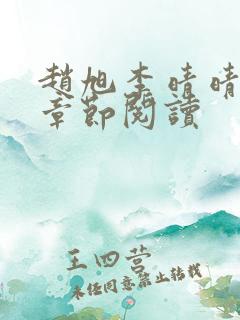 趙旭李晴晴
章節閱讀
王四营
未经同意禁止转载